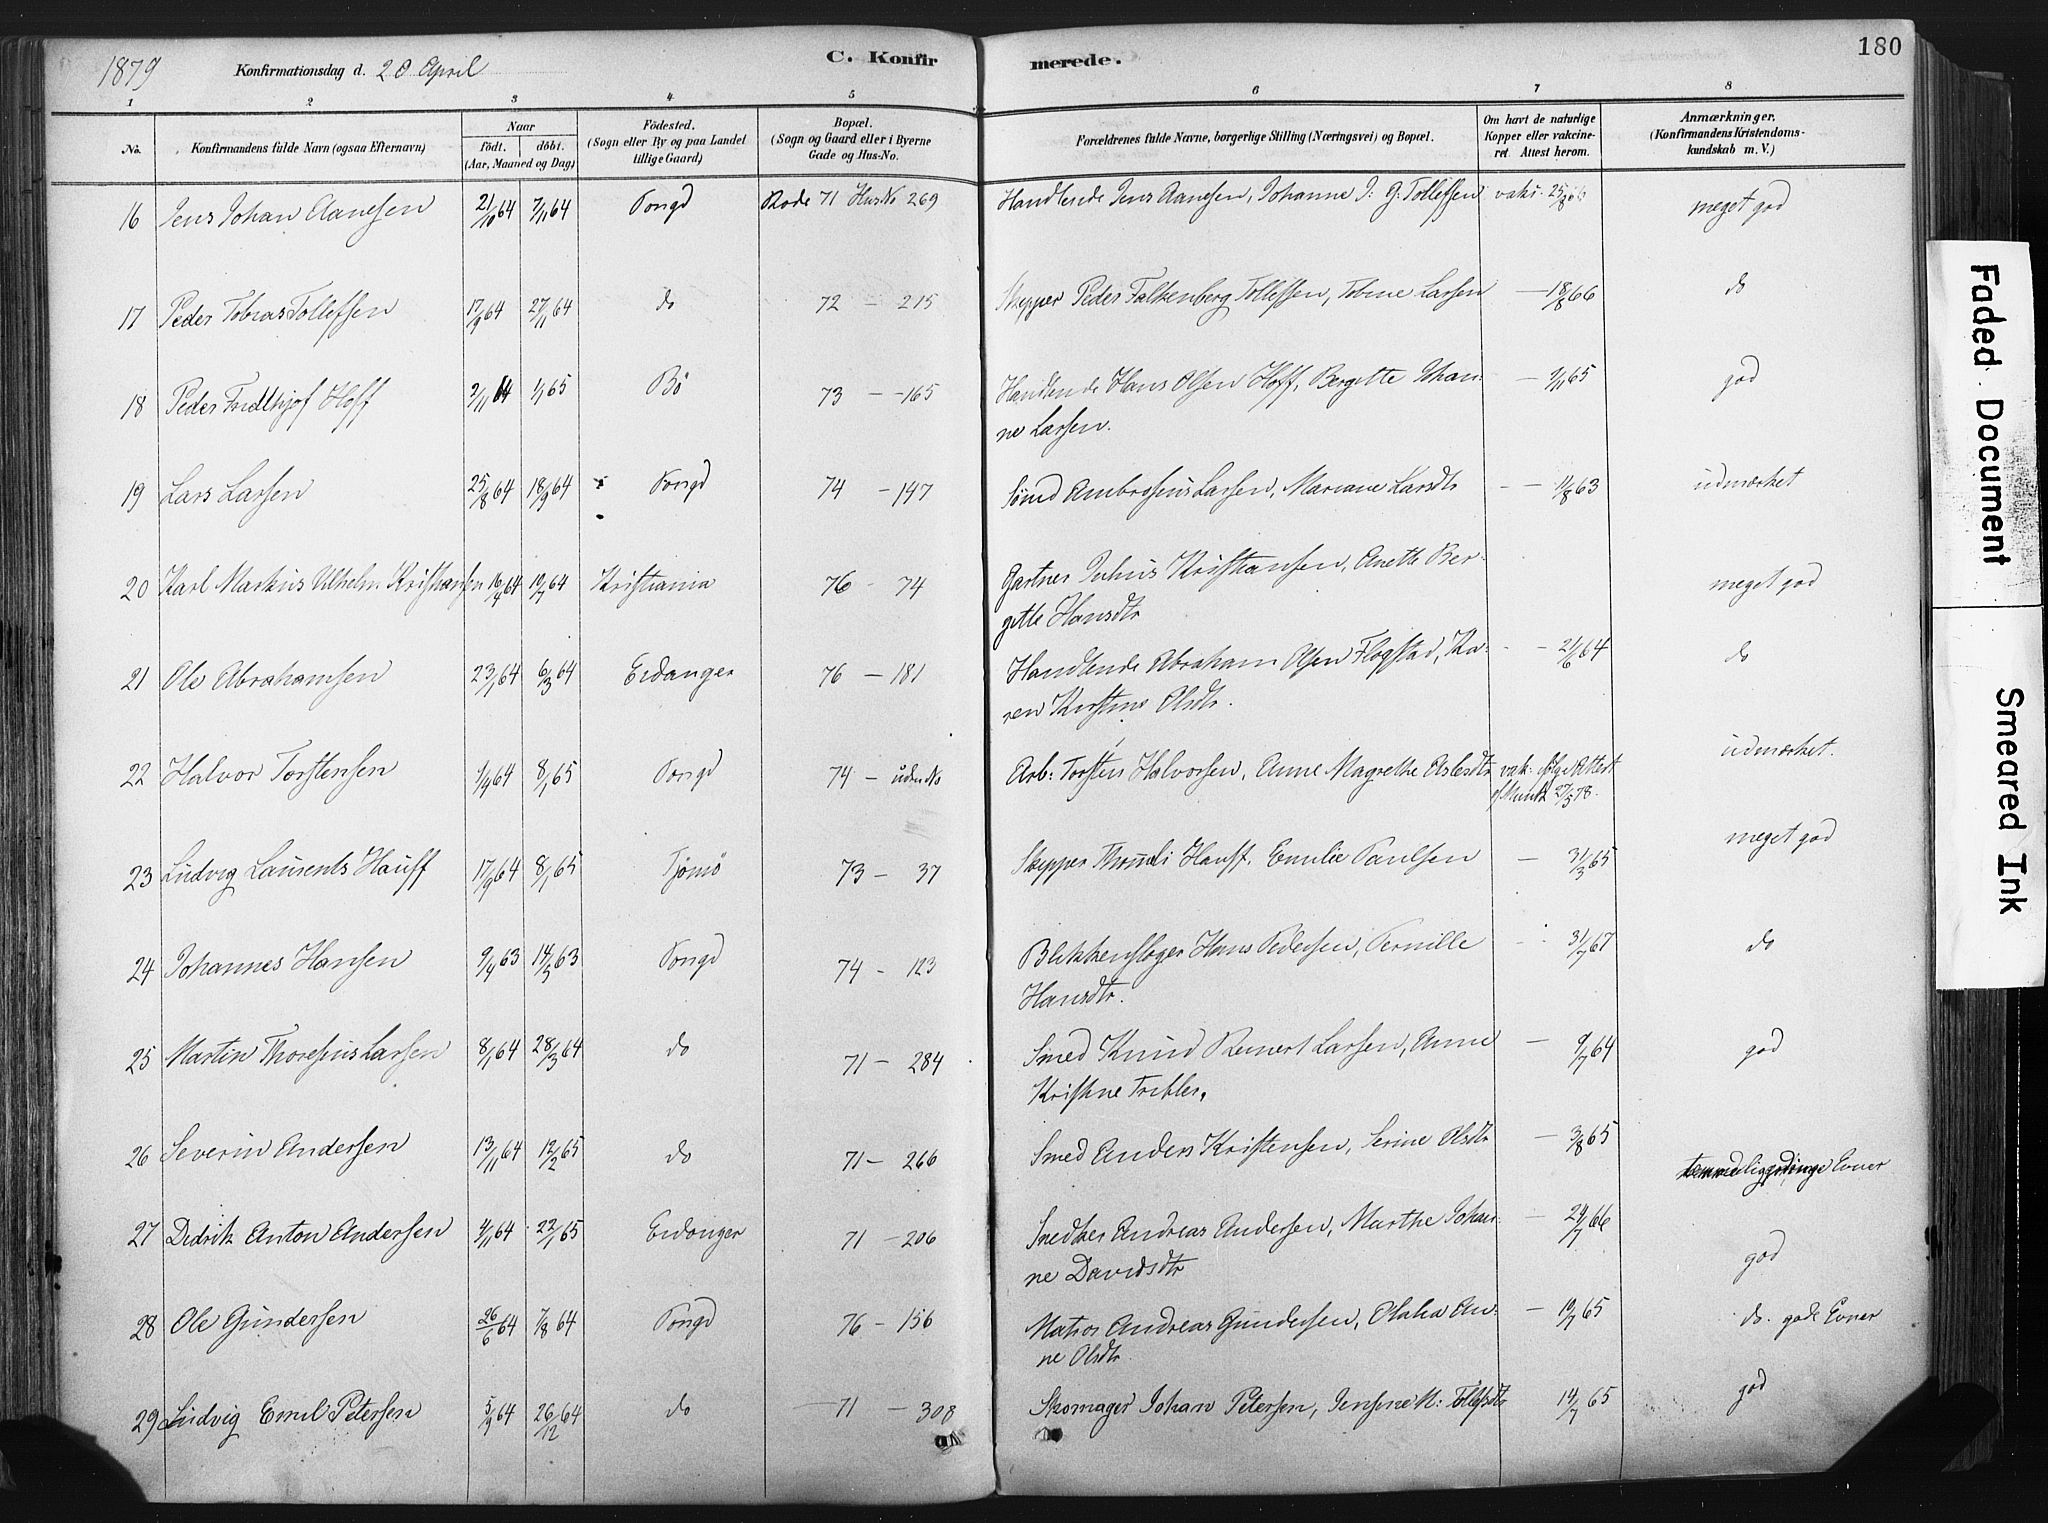 1879 Konfirmationsdag d. 20 April C. Konfirmerede. 180
1 2 3 4 5 6 7 8
No. Konfirmandens fulde Navn (ogsaa Efternavn) Naar Födt. döbt. (Aar, Maaned og Dag) Födested. (Sogn eller By og paa Landet tillige Gaard) Bopæl. (Sogn og Gaard eller i Byerne Gade og Hus-No. Forældrenes fulde Navne, borgerlige Stilling (Næringsvei) og Bopæl. Om havt de naturlige Kopper eller vakcineret. Attest herom. Anmærkninger. (Konfirmandens Kristendomskundskab m. V.)
16 Jens Johan Aanesen 21/10 64 7/11 64 Porsgd Rode 71 HusNo 269 Handlende Jens Aanesen, Johanne J: G: Tollefsen vaks. 25/8 66 meget god
17 Peder Tobias Tollefsen 17/9 64 27/11 64 do 72 - 215 Skipper Peder Falkenberg Tollefsen, Tobine Larsen - 18/8 66 do
18 Peder Fridthjof Hoff 2/11 64 1/1 65 Bö 73 - 165 Handlende Hans Olsen Hoff, Bergitte Johan-
ne Larsen. - 2/11 65 god
19 Lars Larsen 25/8 64 18/9 64 Porsgd 74 - 147 Smed Ambrosius Larsen, Mariane Larsdtr - 11/8 63 udmærket
20 Karl Markus Vilhelm Kristiansen 16/4 64 19/7 64 Kristiania 76 - 74 Gartner Julius Kristiansen, Anette Ber-
gitte Hansdtr meget god
21 Ole Abrahamsen 23/1 64 6/3 64 Eidanger 76 - 181 Handlende Abraham Olsen Flogstad, Ka-
ren Kirstine Olsdtr. - 21/6 64 do
22 Halvor Torstensen 1/9 64 8/1 65 Porsgd 74 - uden No Arb: Torsten Halvorsen, Anne Magrethe Aslesdtr vak. ifølge Attest
af Munk 27/5 78. udmærket.
23 Ludvig Laurents Hauff 17/9 64 8/1 65 Tjömö 73 - 37 Skipper Hauff, Emilie Paulsen - 31/3 65 meget god
24 Johannes Hansen 9/4 63 14/5 63 Porsgd 74 - 123 Blikkenslager Hans Pedersen, Pernille
Hansdtr. - 31/7 67 do
25 Martin Thoresius Larsen 8/1 64 28/3 64 do 71 - 284 Smed Knud Reinert Larsen, Anne
Kristine Tribler. - 9/7 64 god
26 Severin Andersen 13/11 64 12/2 65 do 71 - 266 Smed Anders Kristensen, Serine Olsdtr - 3/8 65 Evner
27 Didrik Anton Andersen 4/11 64 22/1 65 Eidanger 71 - 206 Snedker Andreas Andersen, Marthe Johan-
ne Davidsdtr - 24/7 66 god
28 Ole Gundersen 26/6 64 7/8 64 Porsgd 76 - 156 Matros Andreas Gundersen, Olalia An-
ne Olsdtr. - 19/7 65 do. gode Evner
29 Ludvig Emil Petersen 5/9 64 26/12 64 do 71 - 308 Skomager Johan Petersen, Jensine M: Tollefsdtr 14/7 65 god
Faded Document
Smeared Ink